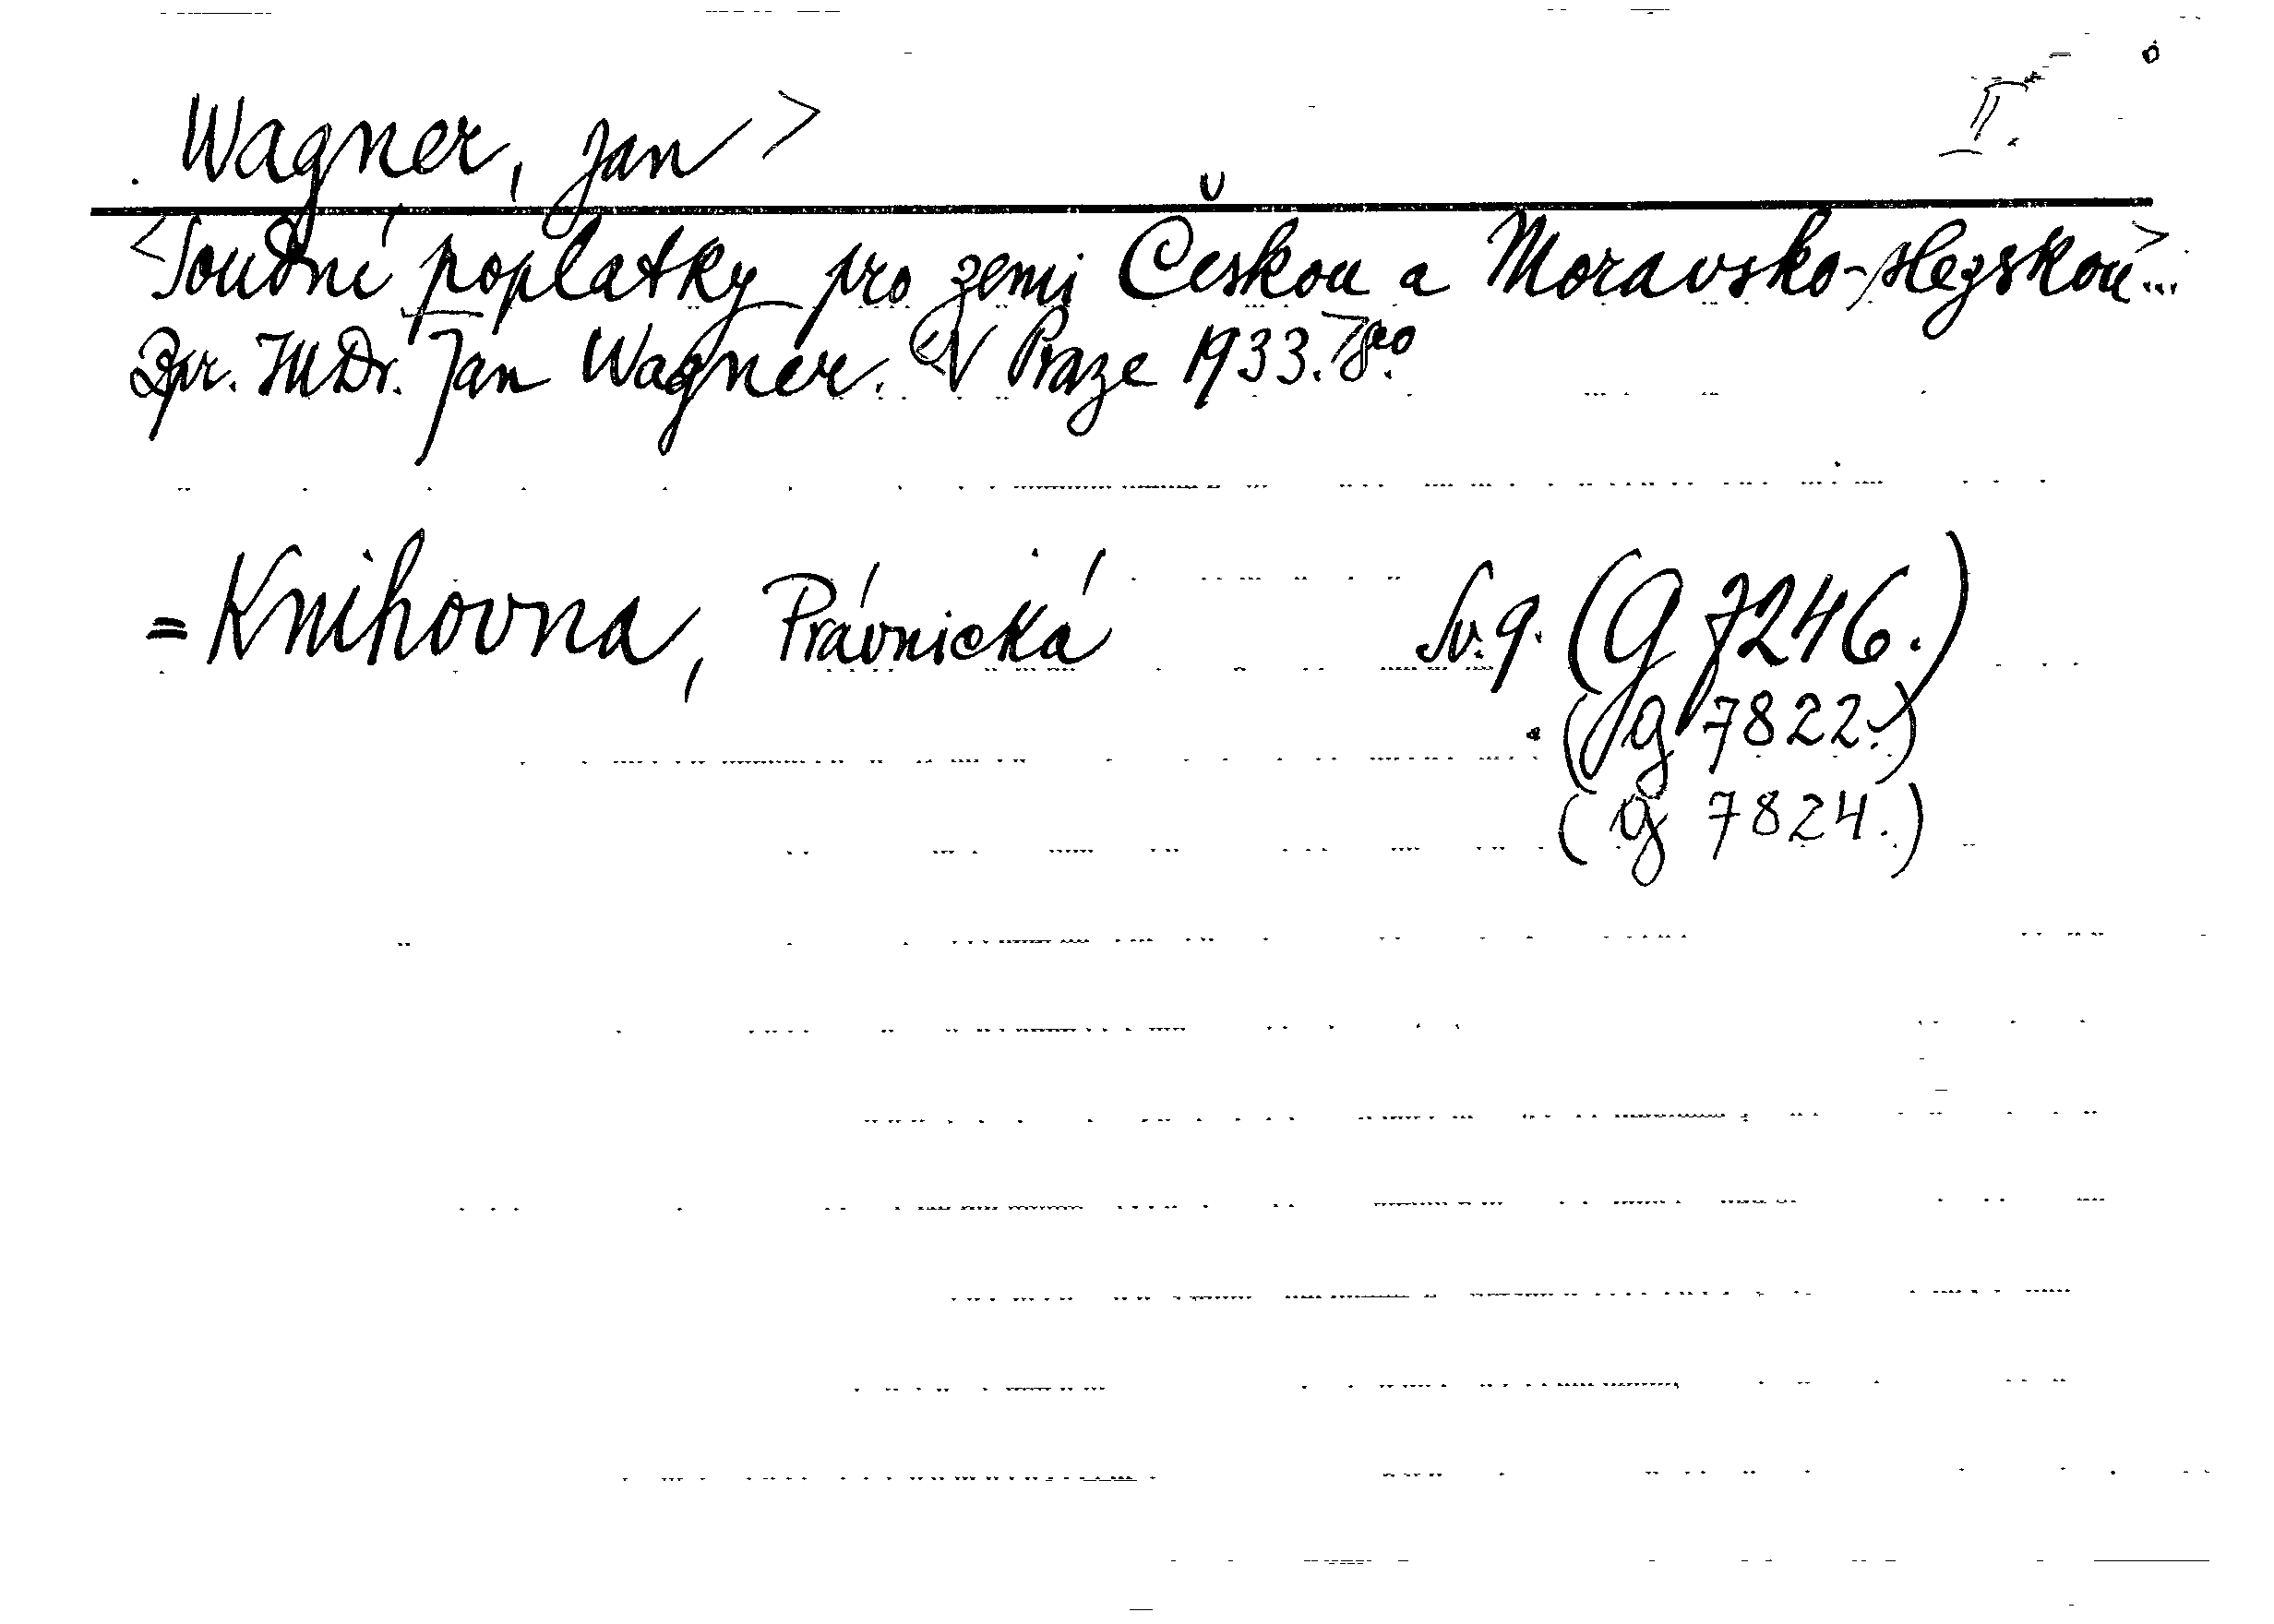 Wagner, Jan >
<Soudní poplatky pro zemi Českou a Moravsko-slezskou>...
Zpr. JUDr. Jan Wagner. <V Praze 1933.> 8co.
= Knihovna, Právnická Sv. 9. (G 7246.)
(g 7822.)
(g 7824.)